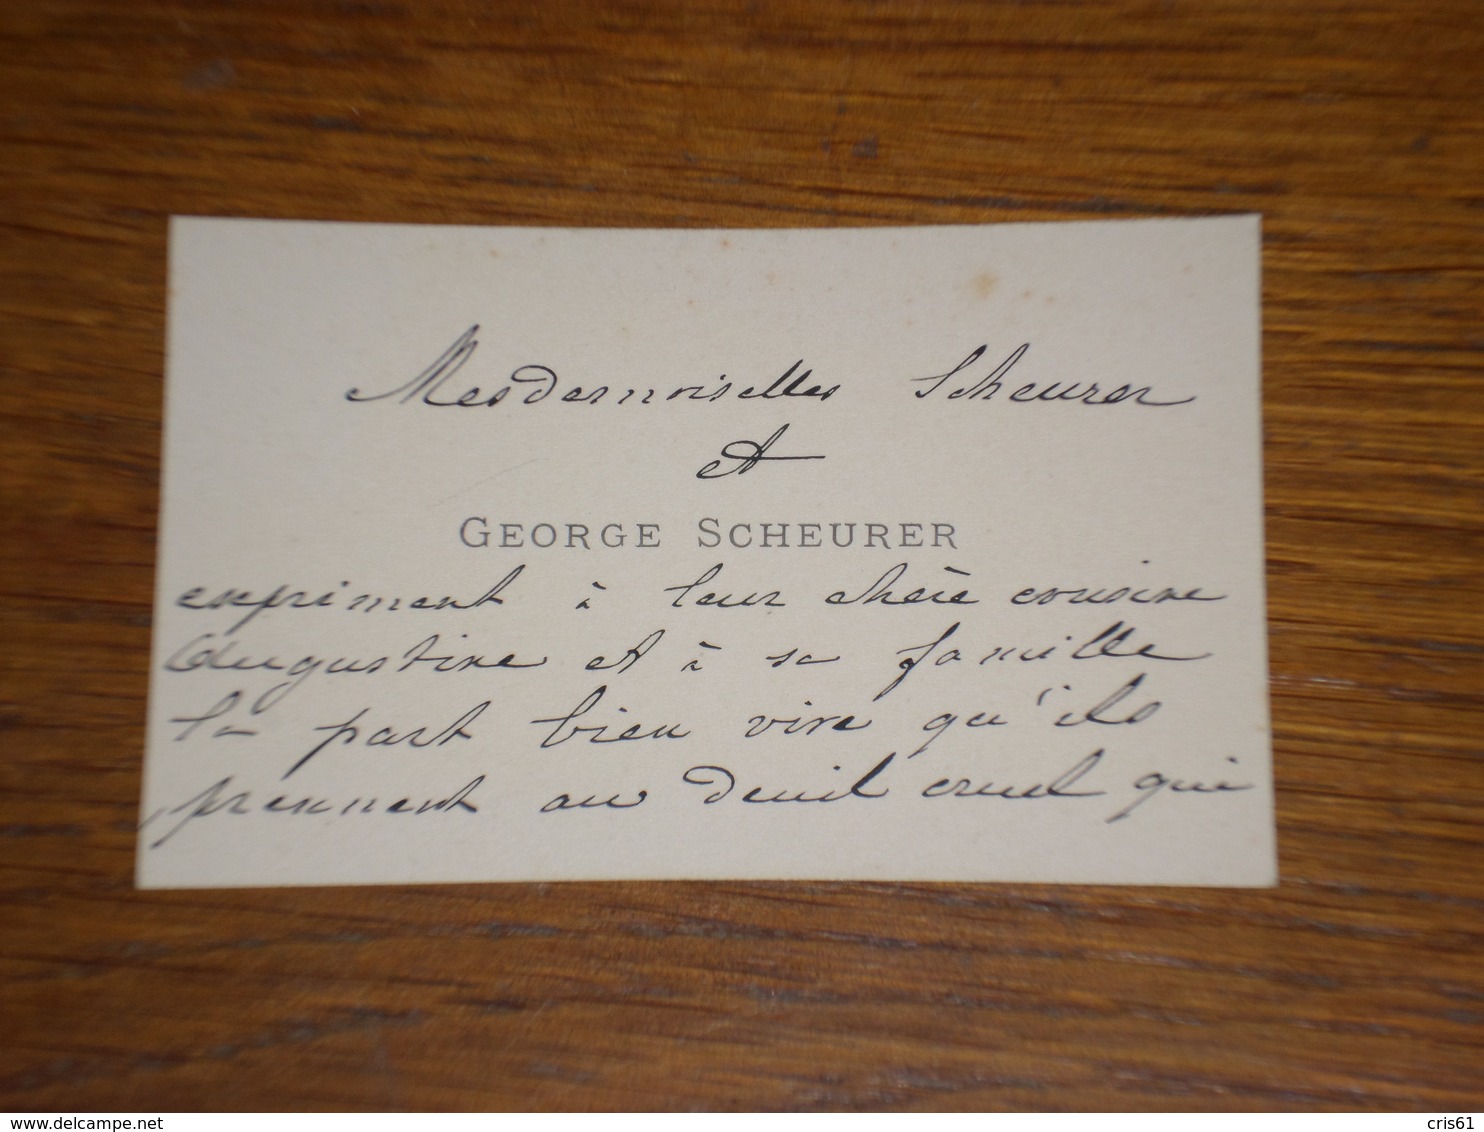 Mesdemoiselles Scheurer
et
GEORGE SCHEURER
expriment à leur chère cousine
Augustine et à sa famille
la part bien vive qu'ils
prennent au deuil cruel qui
delcampe.net
cris61